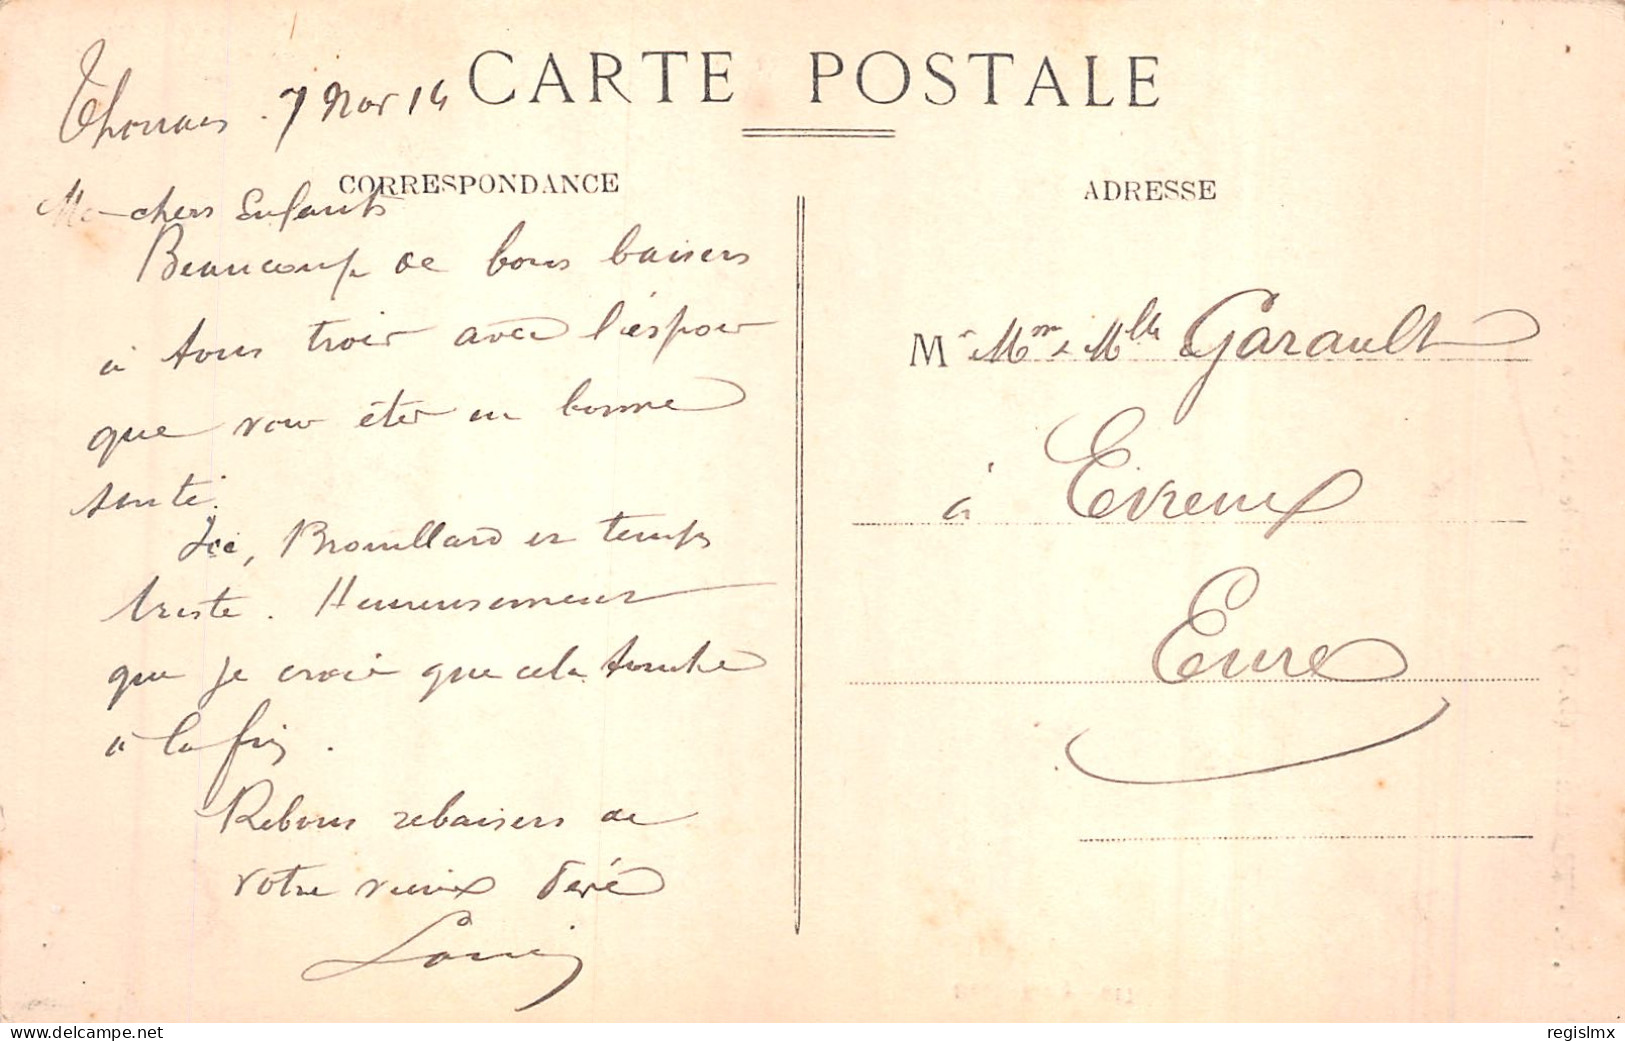 CARTE POSTALE
Thouars . 7 Nov 14
CORRESPONDANCE
Mes chers Enfants
Beaucoup de bons baisers
à tous trois avec l'éspoir
que vous étes en bonne
santé.
Ici, Brouillard et temps
triste. Heureusement
que je crois que cela touche
à la fin .
Rebons rebaisers de
votre vieux
Louis
ADRESSE
Mr Mme & Mlle Garault
à Evreux
Eure
www.delcampe.net
regislmx